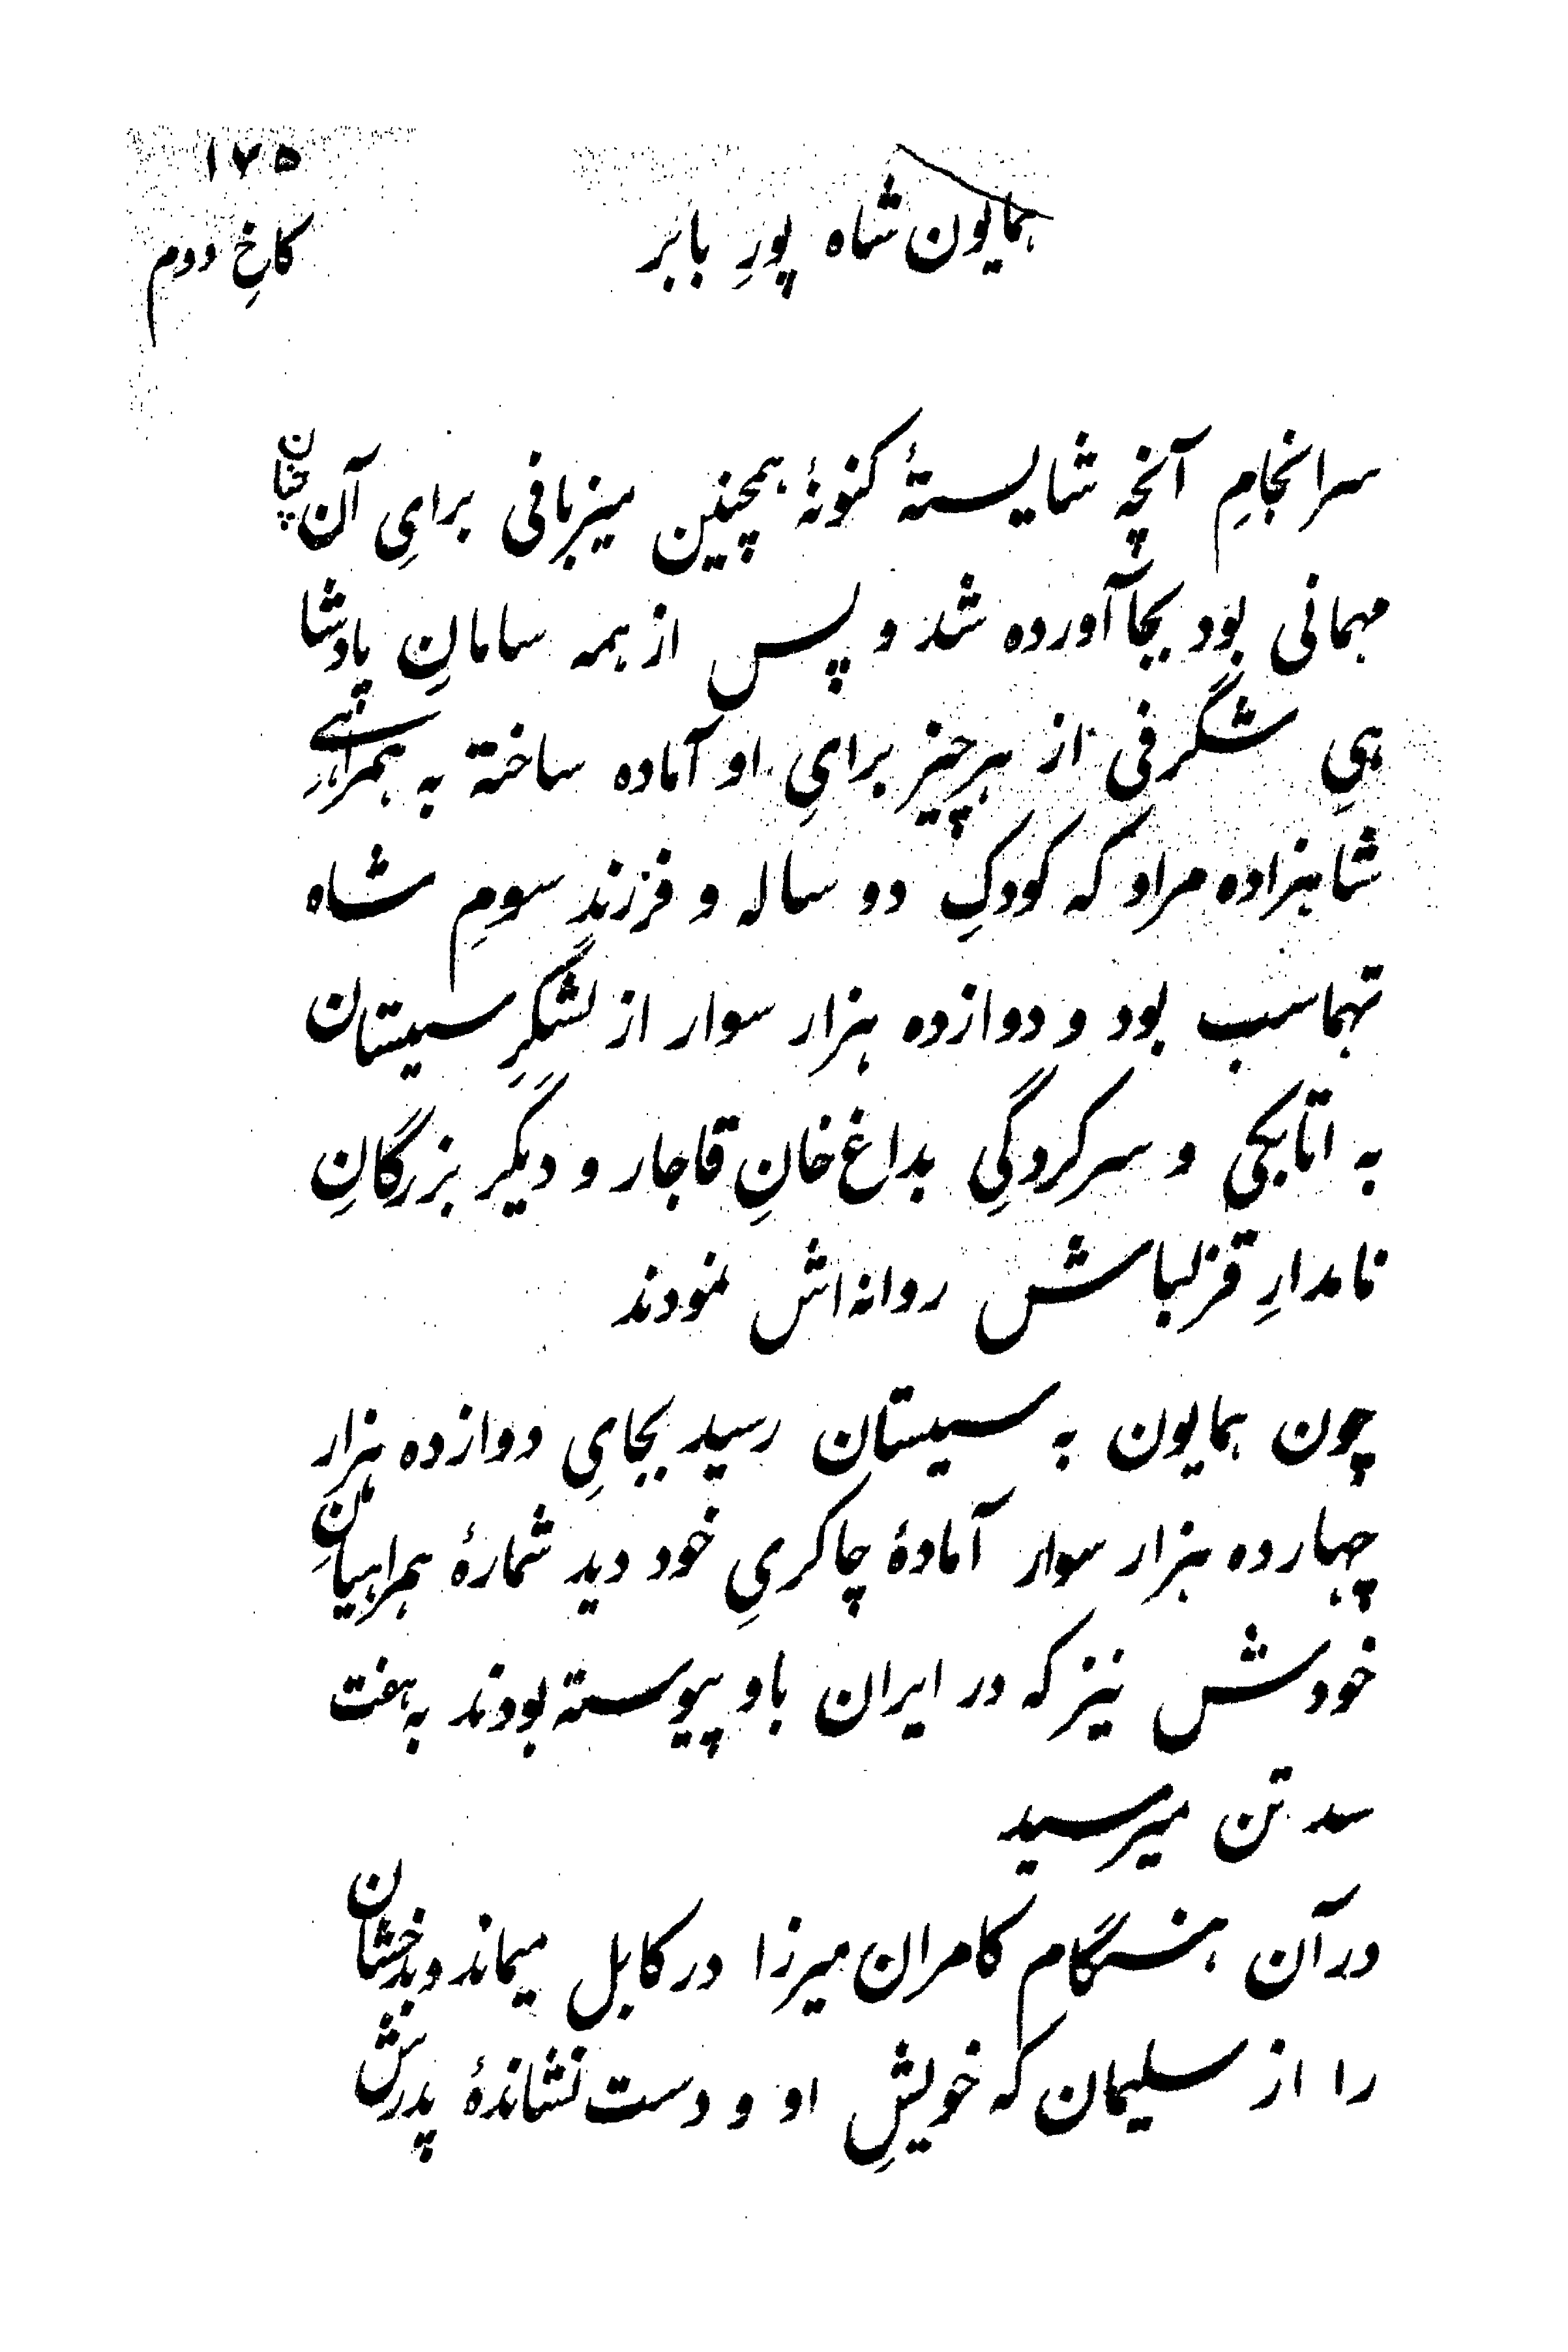 ۱۷۵
همایون شاه پورِ بابر
کاخِ دوم
سرانجامِ آنچه شایستهٔ کنونهٔ همچنین میزبانی برایِ آن چنان
مهمانی بود بجا آورده شد و پس از همه سامانِ پادشا
هیِ شگرفی از هر چیز برایِ او آماده ساخته به همراهیِ
شاهزاده مراد که کودکِ دو ساله و فرزند سومِ شاه
تهماسب بود و دوازده هزار سوار از لشگرِ سیستان
به اتابکی و سرکردگیِ بداغ خانِ قاجار و دیگر بزرگانِ
نامدارِ قزلباش روانه‌اش نمودند
چون همایون به سیستان رسید بجایِ دوازده هزار
چهارده هزار سوار آمادهٔ چاکریِ خود دید شمارهٔ همراهیانِ
خودش نیز که در ایران باو پیوسته بودند به هفت
سد تن میرسید
در آن هنگام کامران میرزا در کابل میماند و بدخشان
را از سلیمان که خویشِ او و دست نشاندهٔ پدرش